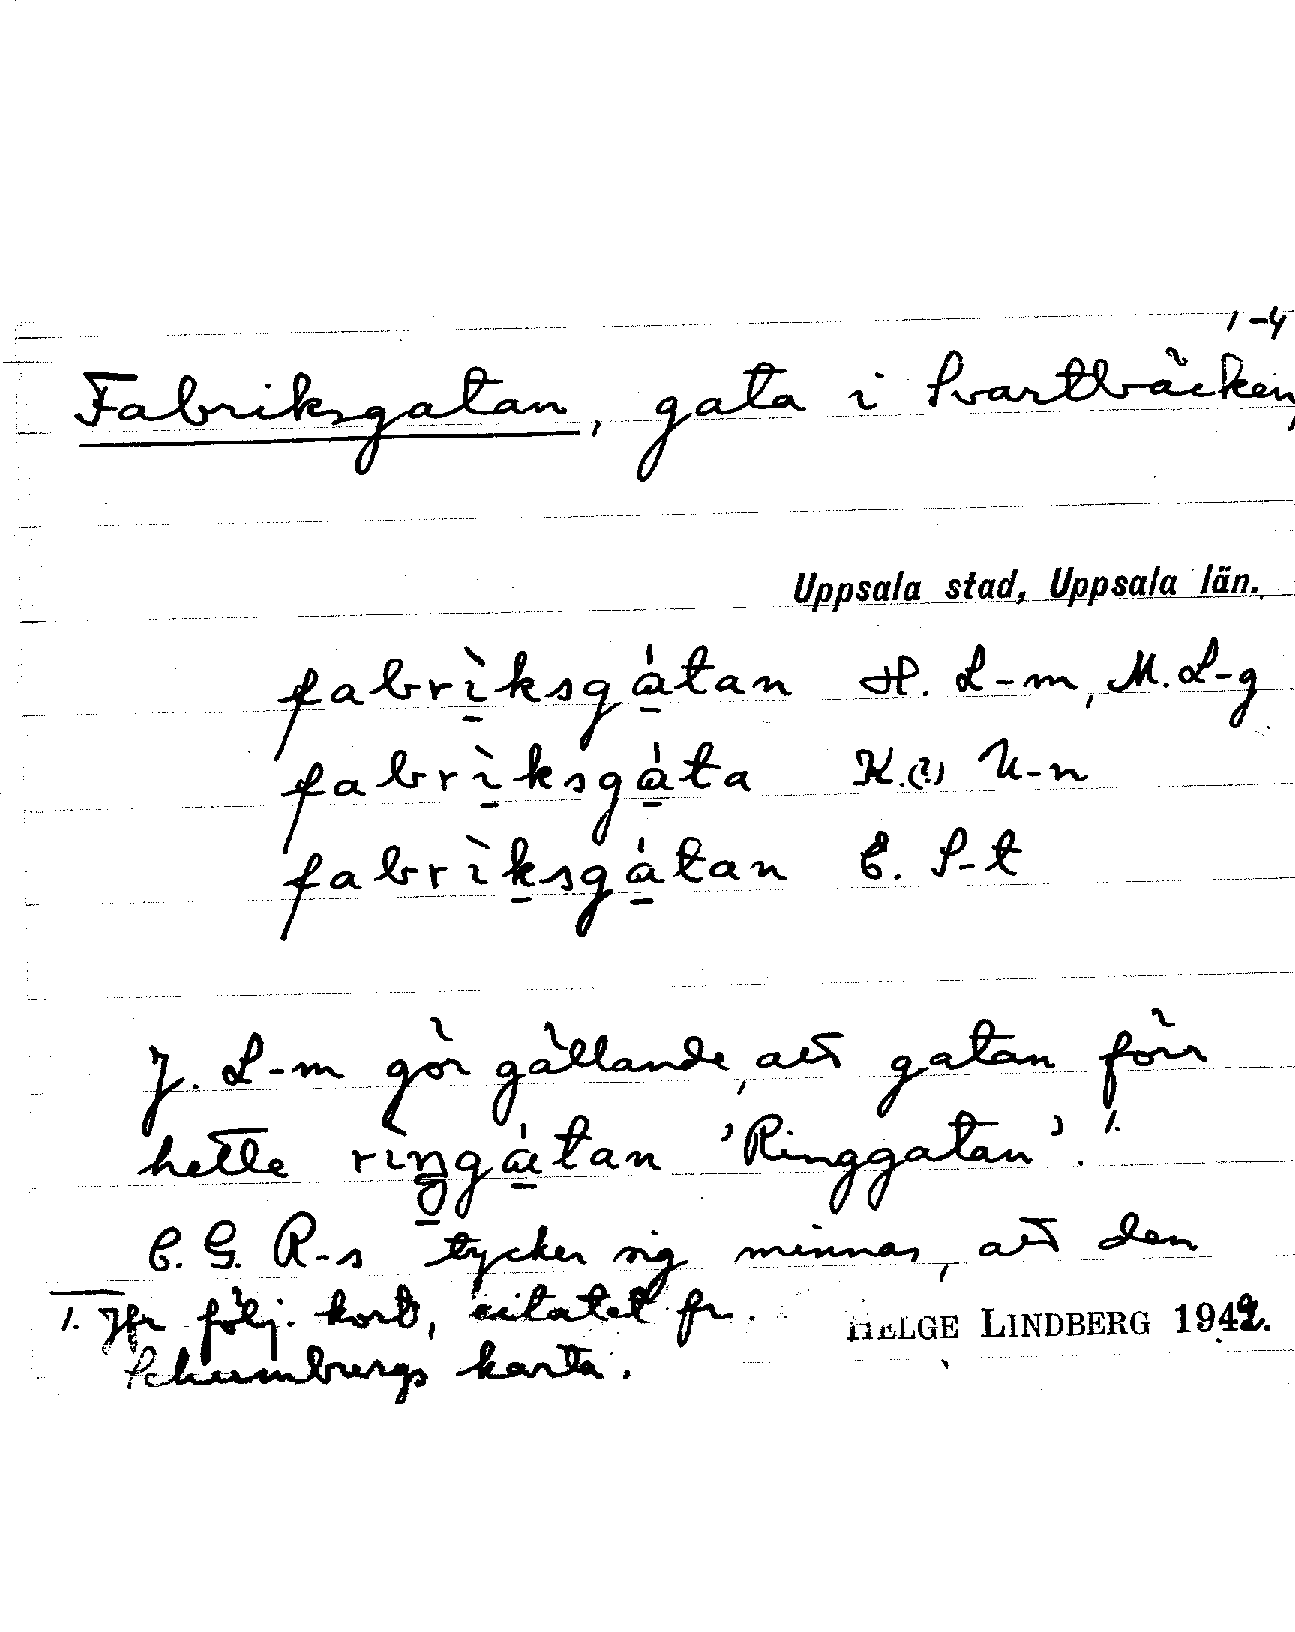 1-4
Fabriksgatan, gata i Svartbäcken,
Uppsala stad, Uppsala län.
fabrìksgátan H. L-m, M. L-g
fabrìksgáta K.(?) U-n
fabrìksgátan E. S-t
J. L-m gör gällande, att gatan förr
hette rìŋgátan 'Ringgatan'.¹·
C. G. R-s tycker sig minnas, att den
1. Jfr följ. kort, citatet fr.
Schumburgs karta.
HELGE LINDBERG 1942.